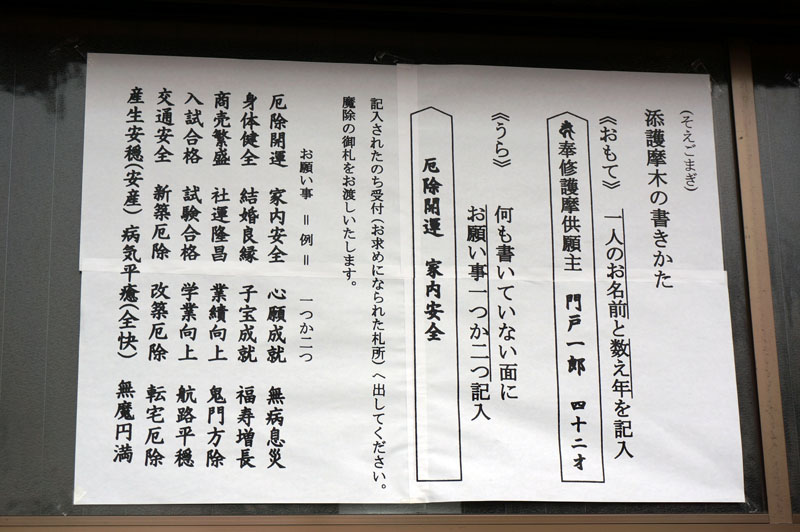 （そえごまぎ）
添護摩木の書きかた
《おもて》 一人のお名前と数え年を記入
奉修護摩供願主 門戸一郎 四十二才
《うら》 何も書いていない面に
お願い事一つか二つ記入
厄除開運 家内安全
記入されたのち受付（お求めになられた札所）へ出してください。
魔除の御札をお渡しいたします。
お願い事 ＝ 例 ＝ 一つか二つ
厄除開運 家内安全 心願成就 無病息災
身体健全 結婚良縁 子宝成就 福寿増長
商売繁盛 社運隆昌 業績向上 鬼門方除
入試合格 試験合格 学業向上 航路平穏
交通安全 新築厄除 改築厄除 転宅厄除
産生安穏（安産） 病気平癒（全快） 無魔円満